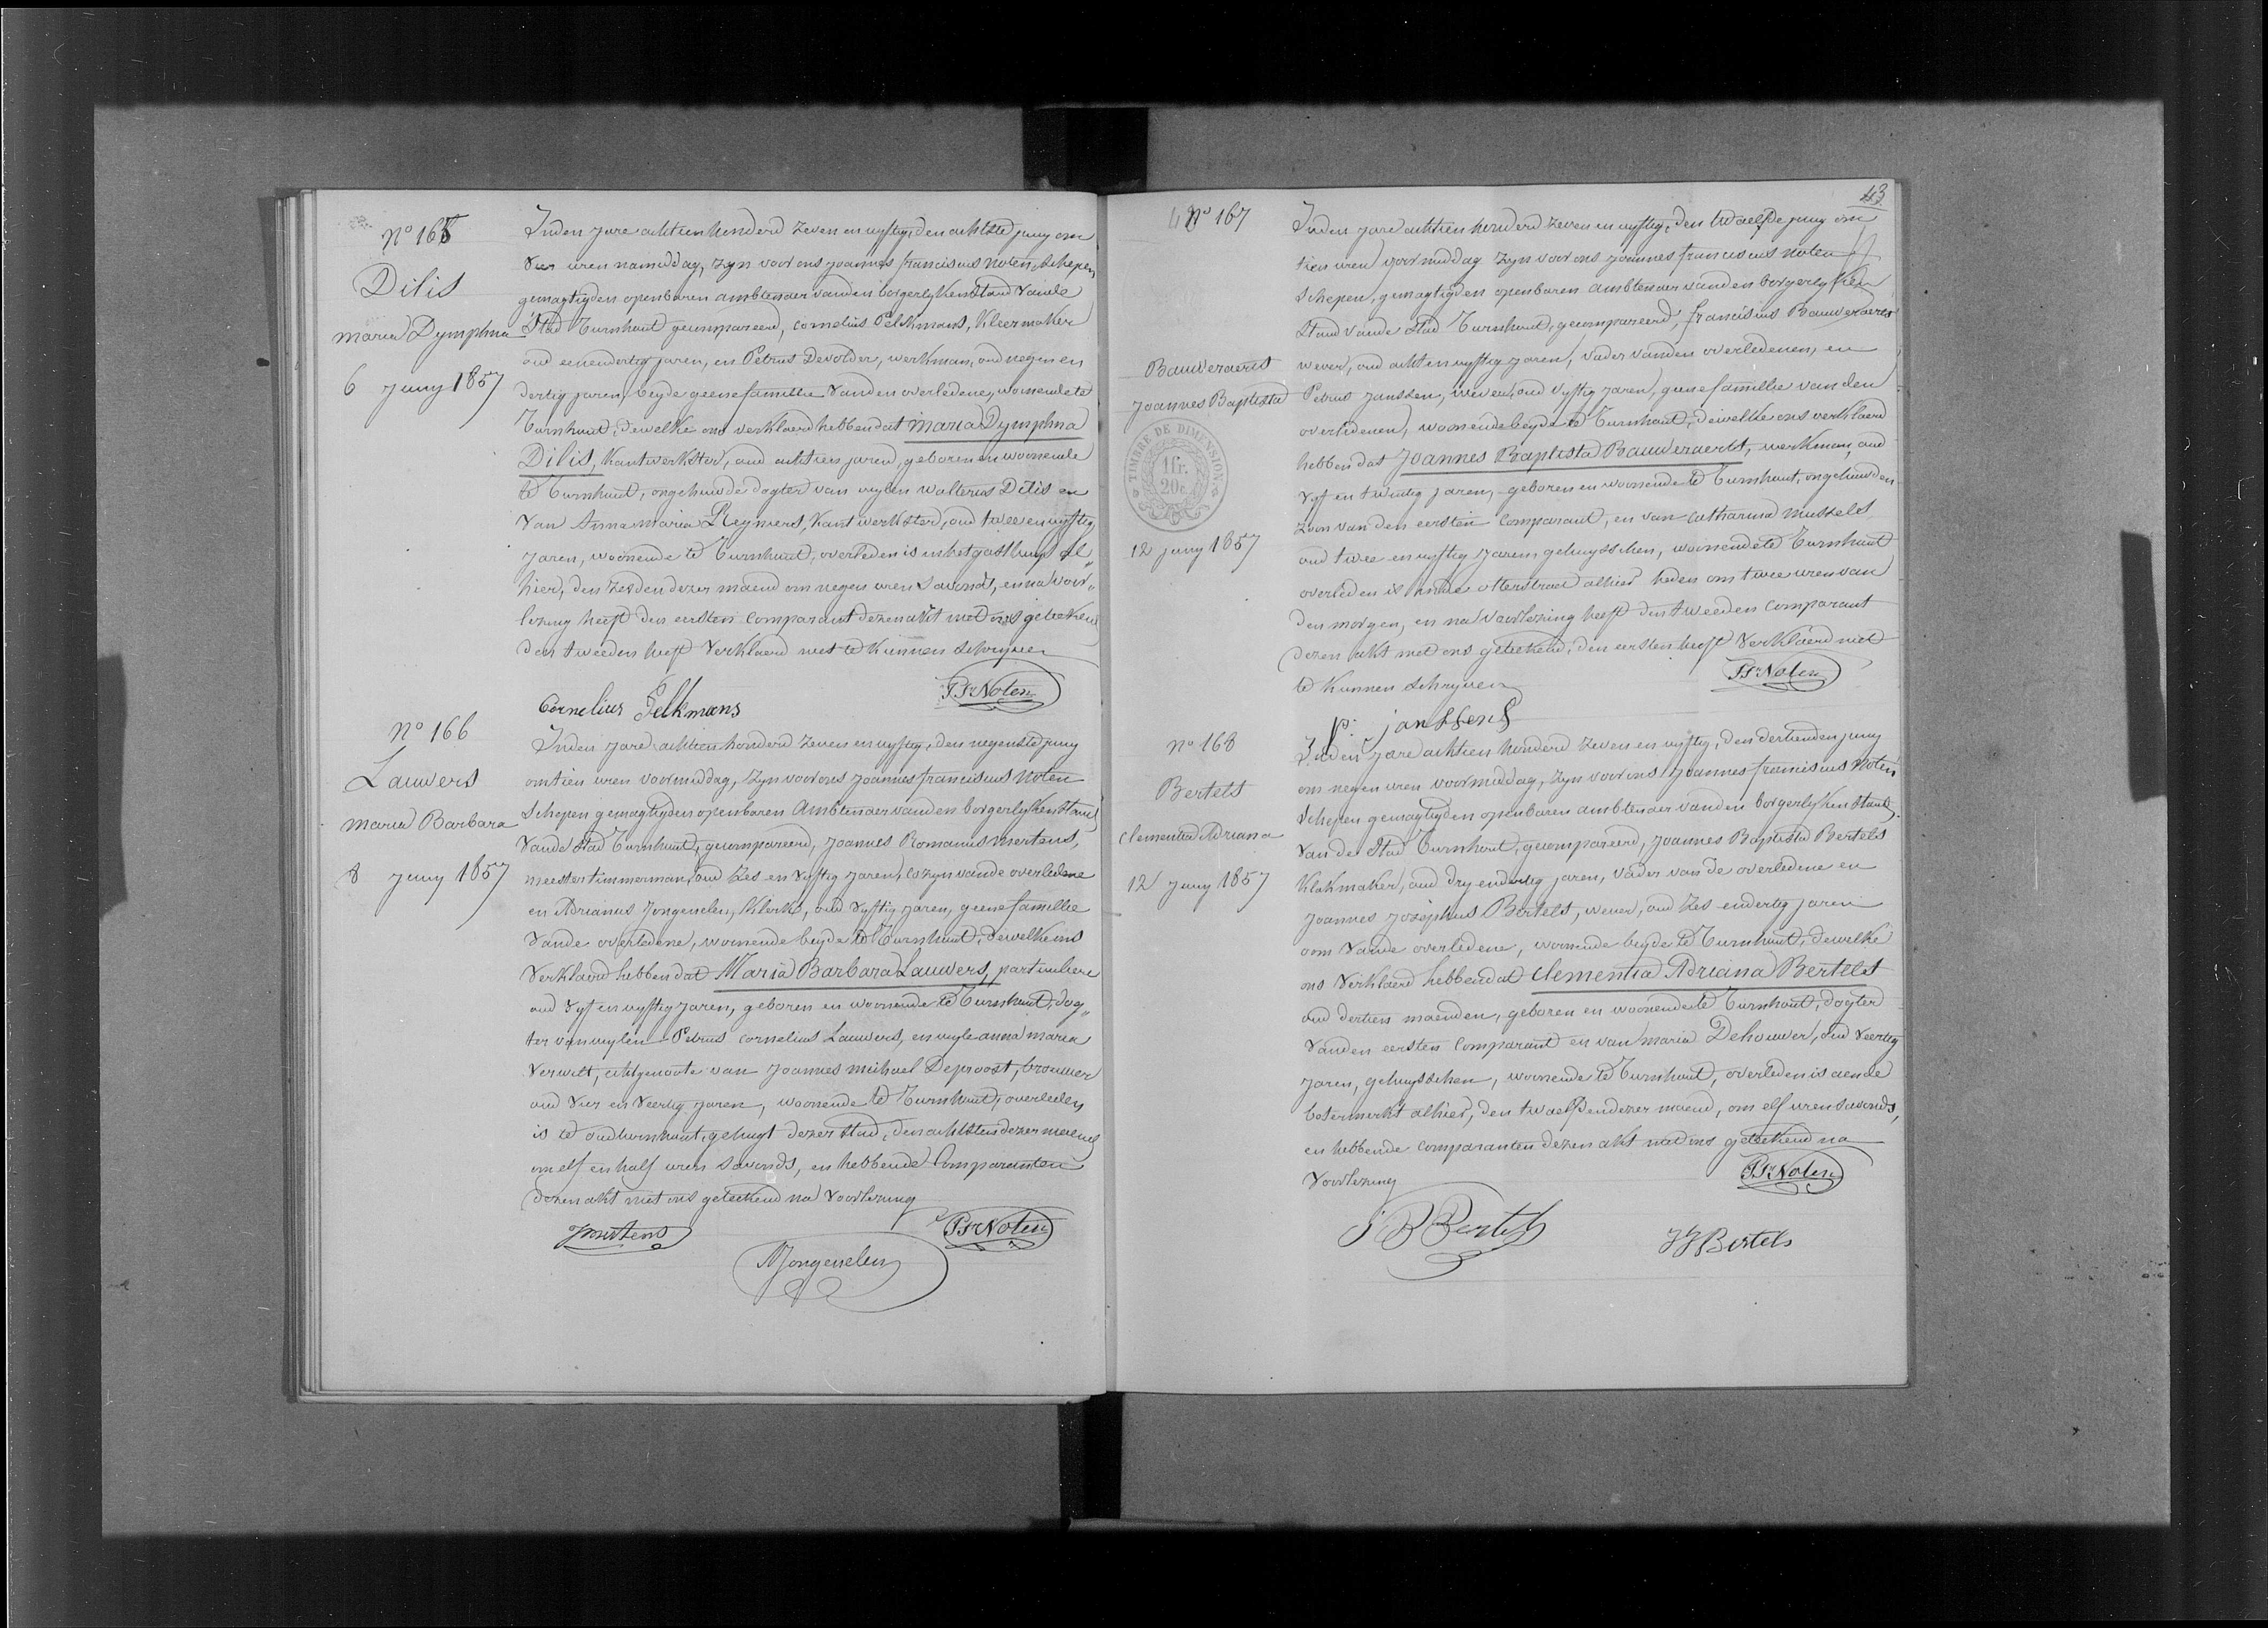 No 165
Dilis
Maria Dymphna
6 juny 1857
Inden jare achtien honderd zeven en vyftig, den achtste juny om
vier uren namiddag, zyn voor ons joannes franciscus Noten, schepen
gemagtigden openbaren ambtenaer vanden borgerlyken stand vande
stad Turnhout gecompareerd, cornelius Pelkmans, kleermaker
oud eenendertig jaren, en Petrus Devolder, werkman, oud negen en
dertig jaren, beyde geene famillie vanden overledene, woonende te
Turnhout, dewelke ons verklaerd hebben dat Maria Dymphna
Dilis, kantwerkster, oud achtien jaren, geboren en woonende
te Turnhout, ongehuwde dogter van wylen walterus Dilis en
van Anna maria Reyniers, kantwerkster, oud twee en vyftig
jaren, woonende te Turnhout, overleden is in het gasthuys al„
hier, den zesden dezer maend om negen uren savonds, en na voor„
lezing heeft den eersten comparant dezen akt met ons geteekend
den tweeden heeft verklaerd niet te kunnen schryven
Cornelius Pelkmans JFrNoten
No 166
Lauwers
Maria Barbara
8 juny 1857
Inden jare achtien honderd zeven en vyftig, den negenste juny
om tien uren voormiddag, zyn voor ons joannes franciscus Noten
schepen gemagtigden openbaren ambtenaer vanden borgerlyken stand
vande stad Turnhout, gecompareerd, joannes Romanus Mertens,
meester timmerman, oud zes en vyftig jaren, cozyn vande overledene
en Adrianus Jongenelen, klerk, oud vyftig jaren, geene famillie
vande overledene, woonende beyde te Turnhout, dewelke ons
verklaerd hebben dat Maria Barbara Lauwers, particuliere
oud vyf en vyftig jaren, geboren en woonende te Turnhout, dog„
ter van wylen Petrus cornelius Lauwers, en wyle anna maria
Verwilt, echtgenoote van joannes michael Deproost, brouwer
oud vier en veertig jaren, woonende te Turnhout, overleden
is te oudturnhout, gehugt dezer stad, den achtsten dezer maend
om elf en half uren savonds, en hebbende comparanten
dezen akt met ons geteekend na voorlezing
JMertens AJongenelen JFrNoten
43
No 167
Bauweraerts
Joannes Baptista
TIMBRE DE DIMENSION
1fr.
20c
12 juny 1857
Inden jare achtien honderd zeven en vyftig, den twaelfde juny om
tien uren voormiddag zyn voor ons joannes franciscus Noten
schepen, gemagtigden openbaren ambtenaer vanden borgerlyken
stand vande stad Turnhout, gecompareerd, franciscus Bauweraerts
wever, oud acht en vyftig jaren, vader vanden overledenen, en
Petrus Janssen, wever, oud vyftig jaren, geene famillie vanden
overledenen, woonende beyde te Turnhout, dewelke ons verklaerd
hebben dat Joannes Baptista Bauweraerts, werkman, oud
vyf en twintig jaren, geboren en woonende te Turnhout, ongehuwden
zoon van den eersten comparant, en van catharina Mussels
oud twee en vyftig jaren, gehuysschen, woonende te Turnhout
overleden is in de otterstraet alhier heden om twee uren van
den morgen, en na voorlezing heeft den tweeden comparant
dezen akt met ons geteekend, den eersten heeft verklaerd niet
te kunnen schryven
JFrNoten
p: janssens
No 168
Bertels
Clementia Adriana
12 juny 1857
Inden jare achtien honderd zeven en vyftig, den dertienden juny
om negen uren voormiddag, zyn voor ons joannes franciscus Noten
schepen gemagtigden openbaren ambtenaer vanden borgerlyken stand
van de stad Turnhout, gecompareerd, joannes Baptista Bertels
klakmaker, oud dry endertig jaren, vader van de overledene en
joannes josephus Bertels, wever, oud zes endertig jaren
oom vande overledene, woonende beyde te Turnhout, dewelke
ons verklaerd hebben dat Clementia Adriana Bertels
oud dertien maenden, geboren en woonende te Turnhout, dogter
vanden eersten comparant en van maria Dehouwer, oud veertig
jaren, gehuysschen, woonende te Turnhout, overleden is aende
botermerkt alhier, den twaelfden dezer maend, om elf uren savonds,
en hebbende comparanten dezen akt met ons geteekend na
voorlezing
JFrNoten
J B Bertels JJBertels